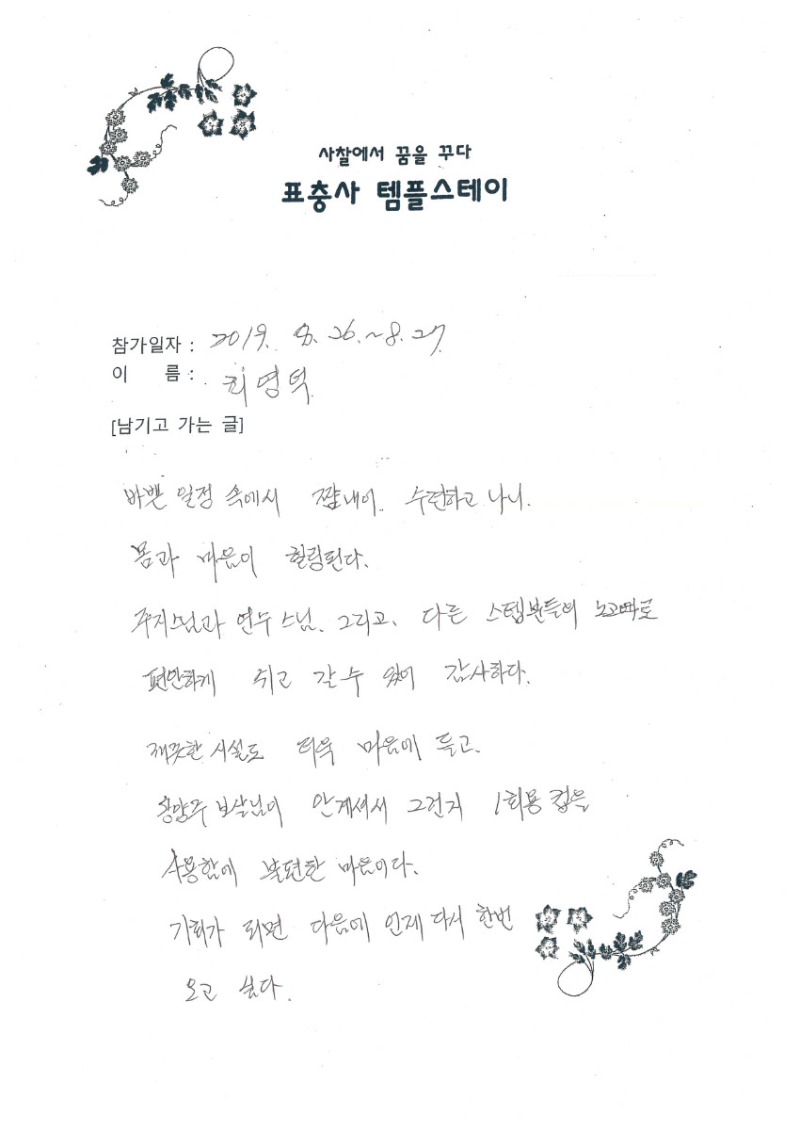 사찰에서 꿈을 꾸다
표충사 템플스테이
참가일자 : 2019. 8. 26. ~ 8. 27
이 름 : 최영덕
[남기고 가는 글]
바쁜 일정 속에서 짬내어. 수련하고 나니.
몸과 마음이 힐링된다.
주지스님과 연수 스님. 그리고, 다른 스텝분들의 노고빠로
편안하게 쉬고 갈 수 있어 감사하다.
깨끗한 시설도 더욱 마음에 들고.
공양주 보살님이 안계셔서 그런지 1회용 컵을
사용함에 불편한 마음이다.
기회가 되면 다음에 언제 다시 한번
오고 싶다.